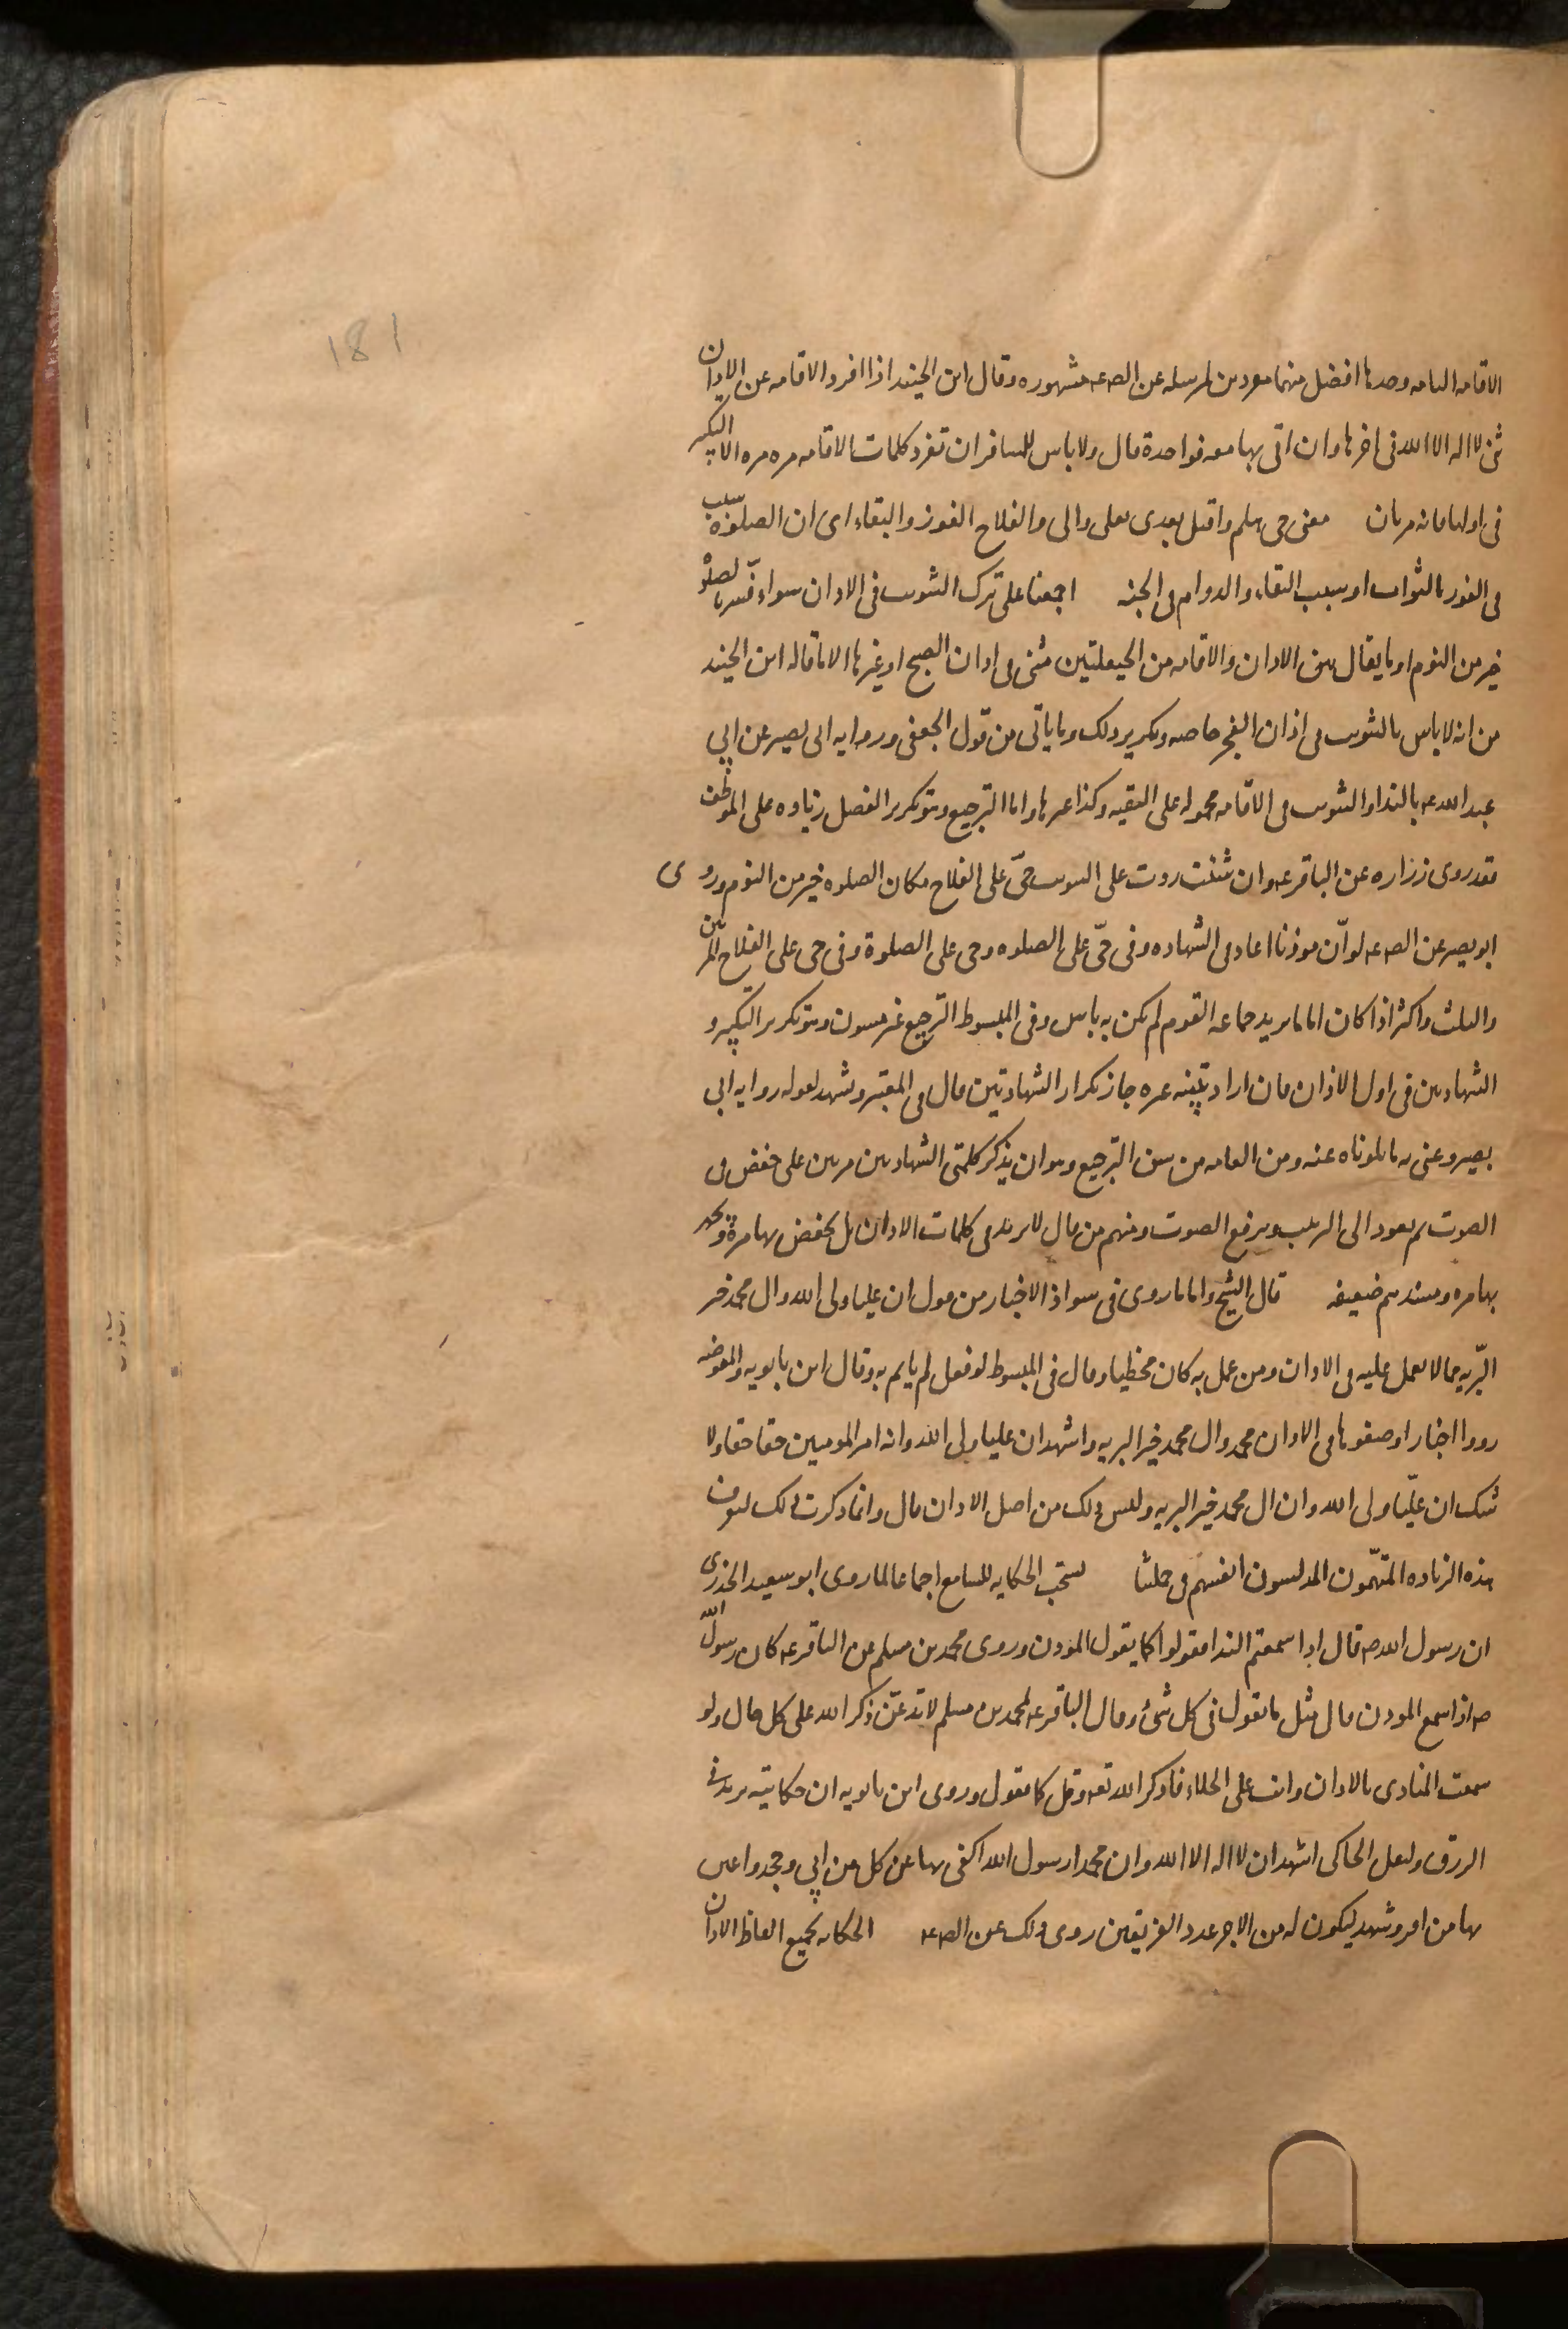 181
الاقامه التامه وحدها افضل منهما مفردين لمرسله عن الص ع مشهوره وقال ابن الجنيد اذا افرد الاقامه عن الاذان
ثنى لا اله الا الله فى اخرها وان اتى بها معه فواحدة قال ولا باس للمسافر ان تفرد كلمات الاقامه مره مره الا التكبير
فى اولها فانه مرتان معنى حى هلم واقبل يعدى بعلى والى والفلاح الفوز والبقاء اى ان الصلوه سبب
فى الفوز بالثواب او سبب البقاء والدوام فى الجنه اجمعنا على ترك التثويب فى الاذان سواء فسر بالصلوه
خير من النوم او ما يقال بين الاذان والاقامه من الحيعلتين مثنى فى اذان الصبح او غيرها الا ما قاله ابن الجنيد
من انه لا باس بالتثويب فى اذان الفجر خاصه وتكرير ذلك وما ياتى من قول الجعفى وروايه ابى بصير عن ابي
عبد الله ع بالنداو التثويب فى الاقامه محموله على التقيه وكذا غيرها واما الترجيع وهو تكرير الفصل زياده على الموظف
فقد روى زراره عن الباقر ع وان شئت زدت على التثويب حىّ على الفلاح مكان الصلوه خير من النوم وروى
ابو بصير عن الص ع لو انّ موذنا اعاد فى الشهاده وفى حىّ على الصلوه وحى على الصلوة وفى حى على الفلاح المرتين
والثلث واكثر اذا كان اماما يريد جماعه القوم لم يكن به باس وفى المبسوط الترجيع غير مسنون وهو تكرير التكبير و
الشهادتين فى اول الاذان فان اراد تنبيه غيره جاز تكرار الشهادتين قال فى المعتبر وشهد لقوله روايه ابى
بصير وعنى به ما تلوناه عنه ومن العامه من سن الترجيع وهو ان يذكر كلمتى الشهادتين مرتين على خفض فى
الصوت ثم يعود الى الترتيب ويرفع الصوت ومنهم من قال لا يزيد فى كلمات الاذان بل يخفض بها مرة ويجهر
بها مره ومسندهم ضعيفه قال الشيخ واما ما روى فى شواذ الاخبار من قول ان عليا ولى الله وال محمد خير
البّريه فمما لا يعمل عليه فى الاذان ومن عمل به كان مخطيا وقال فى المبسوط لو فعل لم ياثم به وقال ابن بابويه والمفوضه
رووا اخبارا وضعوها فى الاذان محمد وال محمد خير البريه واشهد ان عليا ولى الله وانه امير المومنين حقا حقا ولا
شك ان عليّا ولى الله وان ال محمد خير البريه وليس ذلك من اصل الاذان قال وانما ذكرت ذلك ليعرف
بهذه الزياده المتهّمون المدلسون انفسهم فى جملتنا يستحب الحكايه للسامع اجماعا لما روى ابو سعيد الخدرى
ان رسول الله ص قال اذا سمعتم النداء فقولوا كما يقول الموذن وروى محمد بن مسلم عن الباقر ع كان رسول الله
ص اذا سمع الموذن قال مثل ما يقول فى كل شئ وقال الباقر ع لمحمد بن مسلم لا تدعنّ ذكر الله على كل حال ولو
سمعت المنادى بالاذان وانت على الخلاء فاذكر الله تع وقل كما يقول وروى ابن بابويه ان حكايته يزيد فى
الرزق وليقل الحاكى اشهد ان لا اله الا الله وان محمدا رسول الله اكفى بها عن كل من ابي وجحد واعين
بها من اقر وشهد ليكون له من الاجر عدد الفريقين روى ذلك عن الص ع الحكايه لجميع الفاظ الاذان